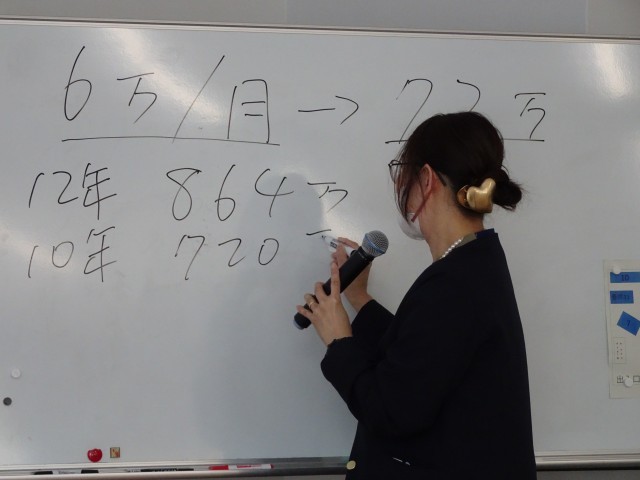 6万/月 → 72万
12年 864万
10年 720